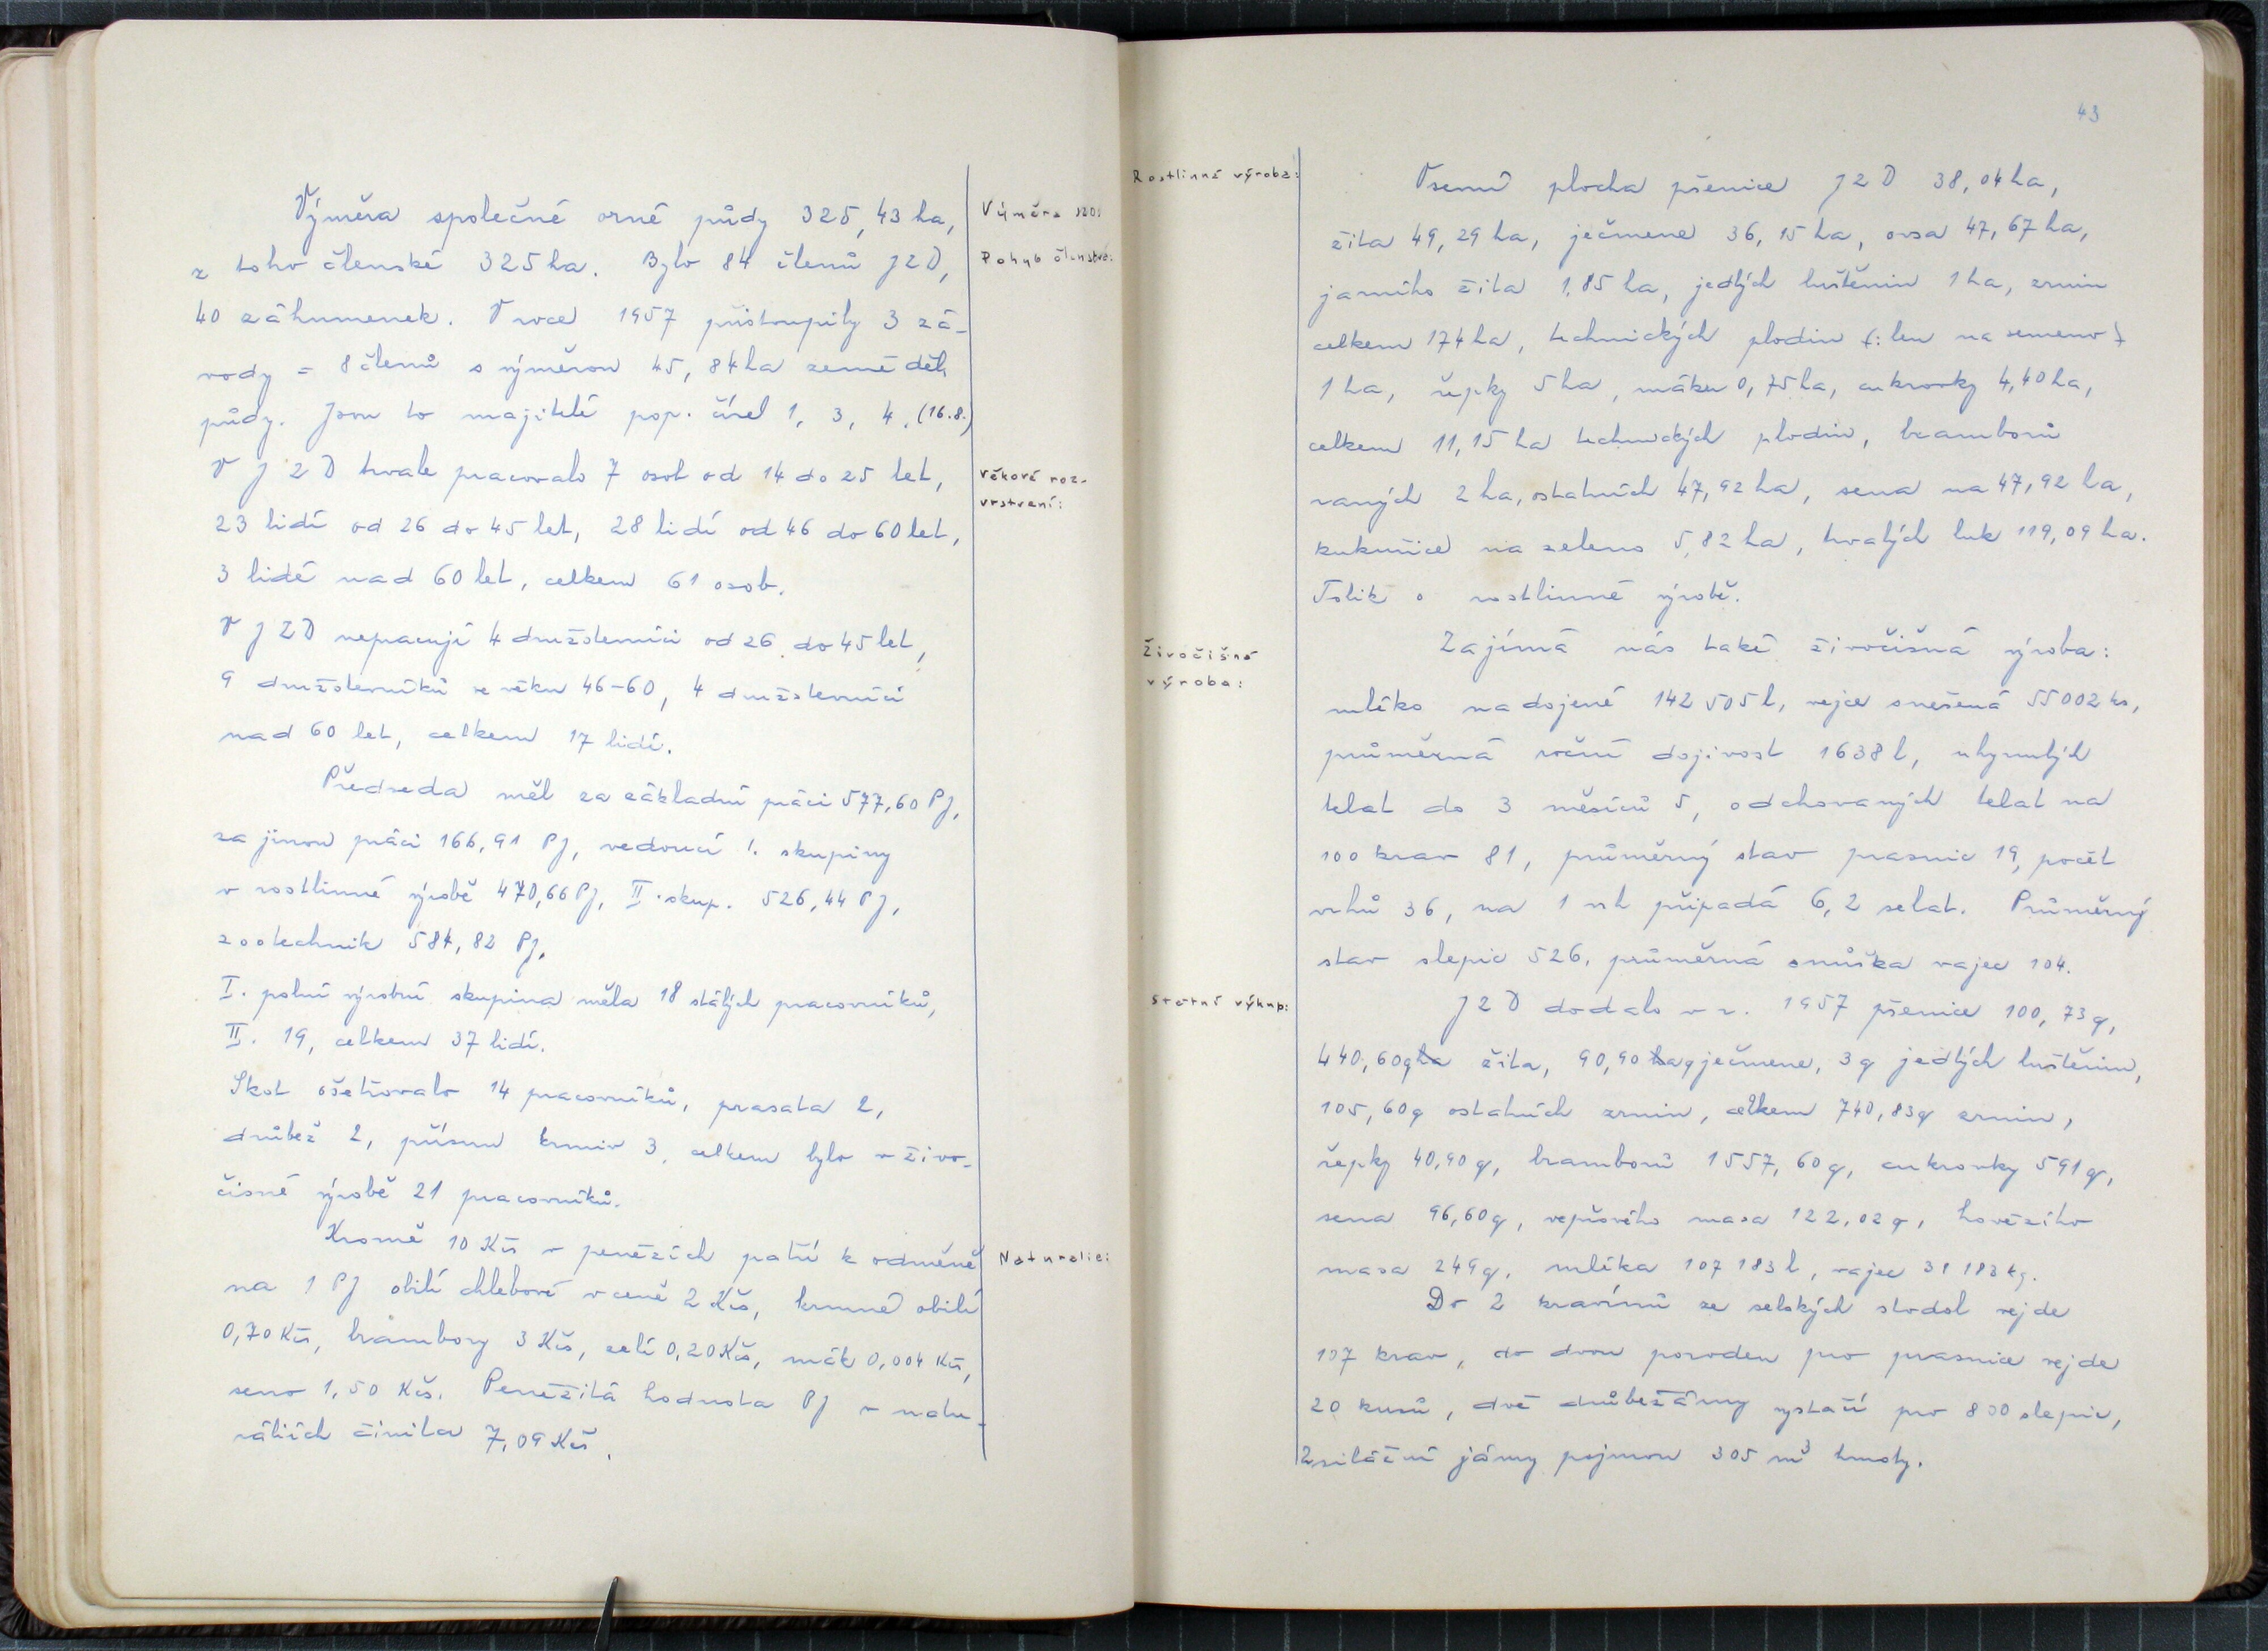 Výměra společné orné půdy 325,43 ha,
z toho členské 325 ha. Bylo 84 členů JZD,
40 záhumenek. V roce 1957 přistoupily 3 zá-
vody = 8 členů s výměrou 45,84 ha zeměděl.
půdy. Jsou to majitelé pop. čísel 1, 3, 4. (16.8.)
V JZD trvale pracovalo 7 osob od 14 do 25 let,
23 lidí od 26 do 45 let, 28 lidí od 46 do 60 let,
3 lidé nad 60 let, celkem 61 osob.
V JZD nepracují 4 družstevníci od 26 do 45 let,
9 družstevníků ve věku 46-60, 4 družstevníci
nad 60 let, celkem 17 lidí.
Předseda měl za základní práci 577,60 PJ,
za jinou práci 166,91 PJ, vedoucí I. skupiny
v rostlinné výrobě 470,66 PJ, II. skup. 526,44 PJ,
zootechnik 584,82 PJ.
I. polní výrobní skupina měla 18 stálých pracovníků,
II. 19, celkem 37 lidí.
Skot ošetřovalo 14 pracovníků, prasata 2,
drůbež 2, přísun krmiv 3, celkem bylo v živo-
čisné výrobě 21 pracovníků.
Kromě 10 Kčs v penězích patří k odměně
na 1 PJ obilí chlebové v ceně 2 Kčs, krmné obilí
0,70 Kčs, brambory 3 Kčs, zelí 0,20 Kčs, mák 0,004 Kčs,
seno 1,50 Kčs. Peněžitá hodnota PJ v natu-
ráliích činila 7,09 Kčs.
Výměra
Pohyb členstva:
Věkové roz-
vrstvení:
Naturalie:
43
Rostlinná výroba:
Živočišná
výroba:
Státní výkup:
Osemí plocha pšenice JZD 38,04 ha,
žita 49,29 ha, ječmene 36,15 ha, ovsa 47,67 ha,
jarního žita 1,85 ha, jedlých luštěnin 1 ha, zrnin
celkem 174 ha, technických plodin (: len na semeno :)
1 ha, řepky 5 ha, máku 0,75 ha, cukrovky 4,40 ha,
celkem 11,15 ha technických plodin, bramborů
raných 2 ha, ostatních 47,92 ha, sena na 47,92 ha,
kukuřice na zeleno 5,82 ha, trvalých luk 119,09 ha.
Tolik o rostlinné výrobě.
Zajímá nás také živočišná výroba:
mléko nadojené 142 505 l, vejce snešená 55 002 ks,
průměrná roční dojivost 1638 l, uhynulých
telat do 3 měsíců 5, odchovaných telat na
100 krav 81, průměrný stav prasnic 19, počet
vrhů 36, na 1 vrh připadá 6,2 selat. Průměrný
stav slepic 526, průměrná snůška vajec 104.
JZD dodalo v r. 1957 pšenice 100,73 q,
440,60 q ha žita, 90,90 ha q ječmene, 3 q jedlých luštěnin,
105,60 q ostatních zrnin, celkem 740,83 q zrnin,
řepky 40,90 q, bramborů 1557,60 q, cukrovky 591 q,
sena 96,60 q, vepřového masa 122,02 q, hovězího
masa 249 q, mléka 107 183 l, vajec 31 183 kg.
Do 2 kravínů ze selských stodol vejde
107 krav, do dvou poroden pro prasnice vejde
20 kusů, dvě drůbežárny vystačí pro 800 slepic,
2 silážní jámy pojmou 305 m³ hmoty.